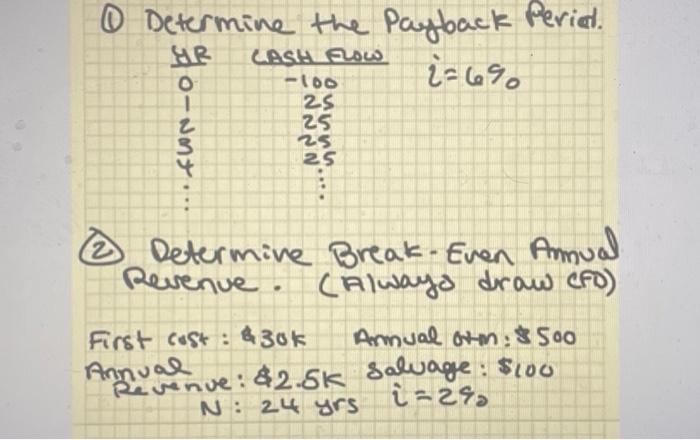 ① Determine the Payback Period.
YR CASH FLOW i=6%
0 -100
1 25
2 25
3 25
4 25
⋮ ⋮
② Determine Break-Even Annual
Revenue. (Always draw CFD)
First cost: $30k Annual O+M: $500
Annual Revenue: $2.5K Salvage: $100
N: 24 yrs i=2%